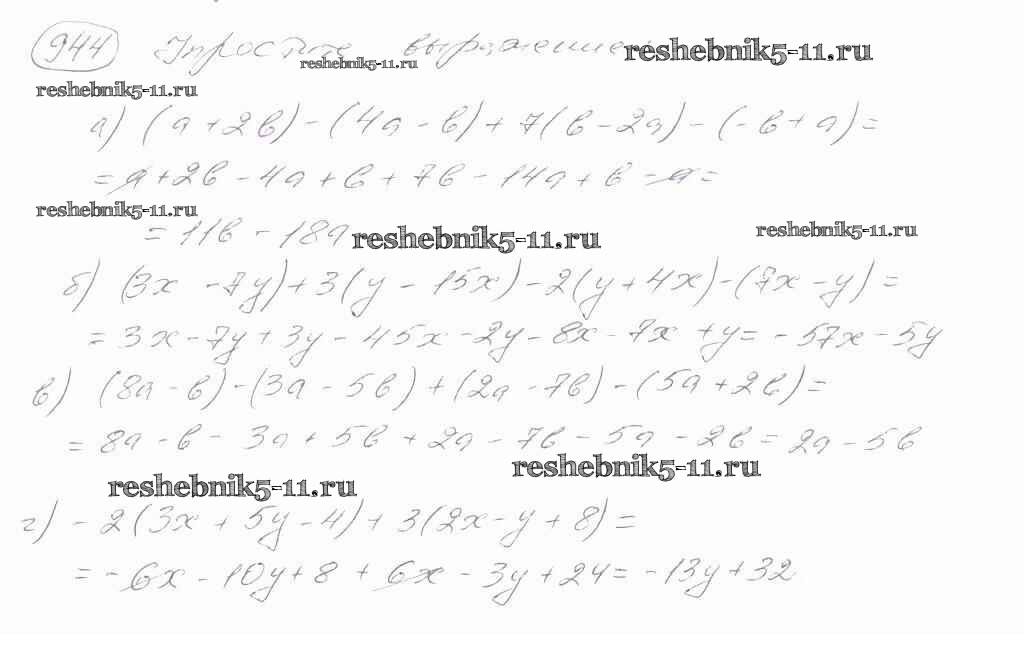 944 Упростите выражение reshebnik5-11.ru
reshebnik5-11.ru
reshebnik5-11.ru
а) (a + 2b) - (4a - b) + 7(b - 2a) - (-b + a) =
= a + 2b - 4a + b + 7b - 14a + b - a =
reshebnik5-11.ru
= 11b - 18a reshebnik5-11.ru reshebnik5-11.ru
б) (3x - 7y) + 3(y - 15x) - 2(y + 4x) - (7x - y) =
= 3x - 7y + 3y - 45x - 2y - 8x - 7x + y = - 57x - 5y
в) (8a - b) - (3a - 5b) + (2a - 7b) - (5a + 2b) =
= 8a - b - 3a + 5b + 2a - 7b - 5a - 2b = 2a - 5b
reshebnik5-11.ru reshebnik5-11.ru
г) - 2(3x + 5y - 4) + 3(2x - y + 8) =
= - 6x - 10y + 8 + 6x - 3y + 24 = - 13y + 32